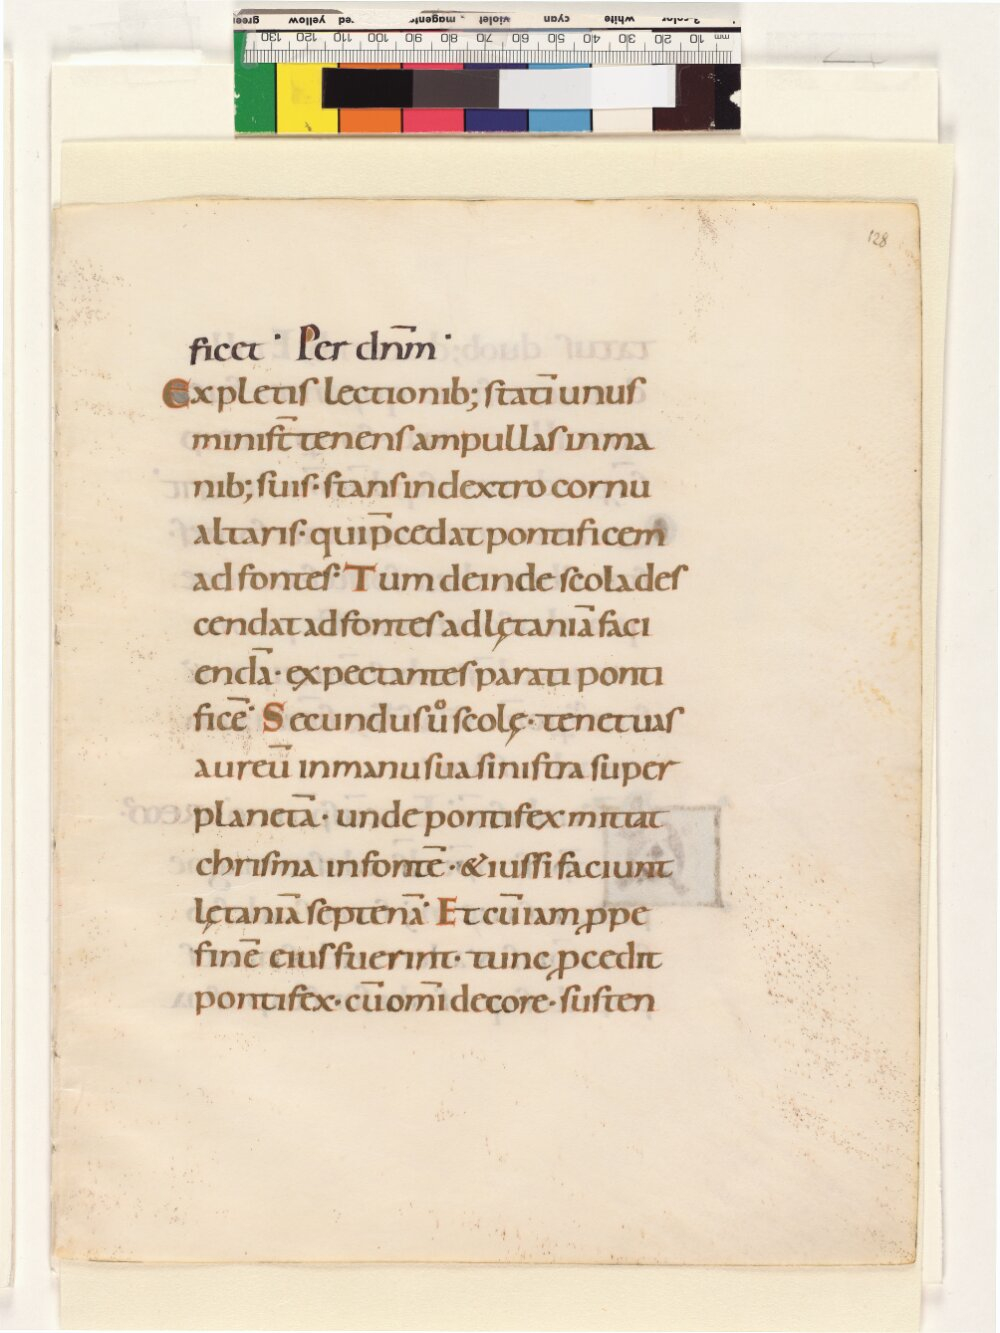 green yellow red magenta violet cyan white 3-color
130 120 110 100 90 80 70 60 50 40 30 20 10 mm
128
ficet · Per dnm̄ ·
Expletis lectionib; statī unus
minist̄ tenens ampullas in ma
nib; suis · stans in dextro cornu
altaris · qui p̄cedat pontificem
ad fontes · Tum deinde scola des
cendat ad fontes ad lętaniā faci
endā · expectantes parati ponti
ficē · Secundus ů scolę · tenet uas
aureū in manu sua sinistra super
planetā · unde pontifex mittat
chrisma in fontē · & iussi faciunt
lętaniā septenā · Et cū iam ꝓpe
finē eius fuerint · tunc ꝓcedit
pontifex · cū om̄i decore · susten